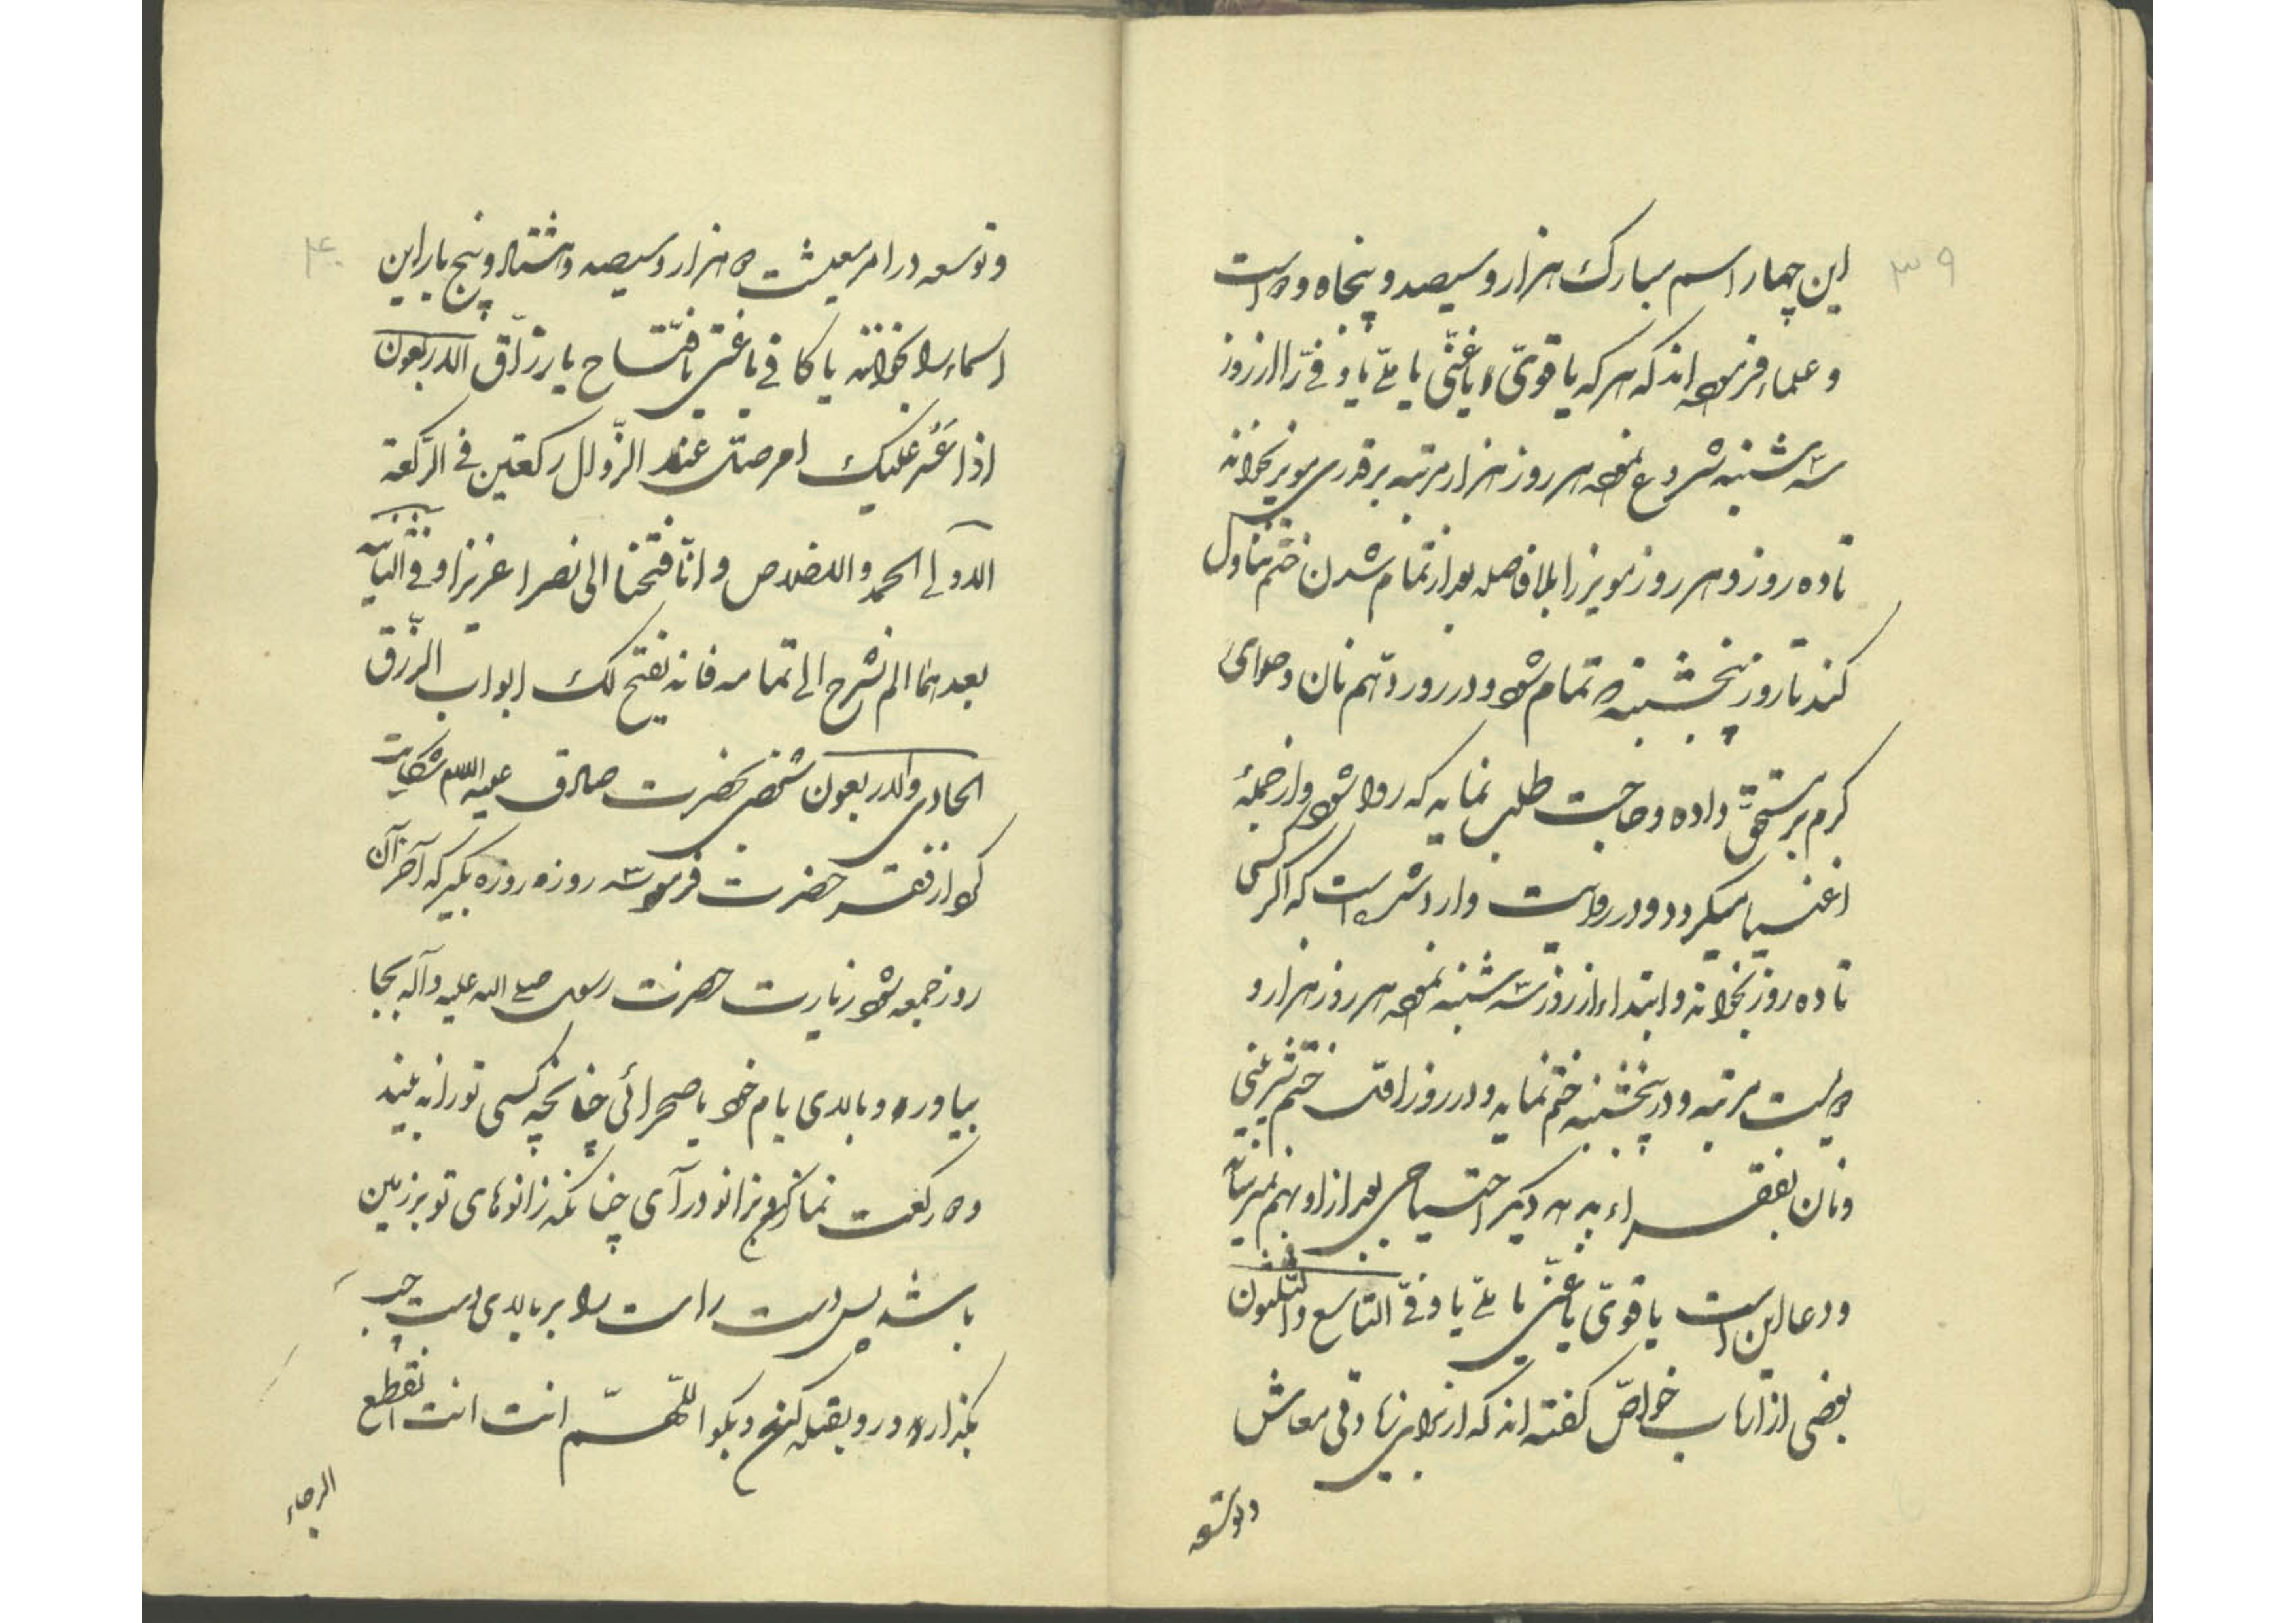 ۳۹
این چهار اسم مبارک هزار و سیصد و پنجاه و دو است
و علماء فرموده اند که هر که یا قویّ یا غنّی یا ملّی یا وفیّ را از روز
سه شنبه شروع نموده هر روز هزار مرتبه بر قدری مویز بخواند
تا ده روز و هر روز مویز را بلا فاصله بعد از تمام شدن ختم تناول
کند تا روز پنجشنبه تمام شود و در روز دهم نان و حلوای
کرم بر مستحق داده و حاجت طلب نماید که روا شود و از جملهٔ
اغنیا میکردد و در روایت وارد شده است که اکر کسی
تا ده روز بخواند و ابتداء از روز سه شنبه نموده هر روز هزار و
دویست مرتبه و در پنجشنبه ختم نماید و در روز ختم شیرینی
و نان بفقراء بدهد دیکر احتیاجی بعد از او بهم نمیرساند
و دعا این است یا قویّ یا غنّی یا ملّی یا وفیّ التاسع والثلثون
بعضی از ارباب خواصّ کفته اند که از برای رفاه معاش
و توسعه
۴۰
و توسعه در امر معیشت دو هزار و سیصد و هشتاد و پنج بار این
اسماء را بخواند یا کافی یا غنی یا فتّاح یا رزّاق الاربعون
اذا عسر علیک امر صلّ عند الزّوال رکعتین فی الرّکعة
الاولی الحمد والاخلاص و انّا فتحنا الی نصرا عزیزا و فی الثانیة
بعدهما الم نشرح الی تمامه فانه یفتح لک ابواب الرّزق
الحادی والاربعون شخصی بحضرت صادق علیه السلام شکایت
کرد از فقر حضرت فرمود سه روز روزه بکیر که آخر آن
روز جمعه شود زیارت حضرت رسول صلی الله علیه وآله بجا
بیاور و بالای بام خود یا صحرائی چنانچه کسی تو را نه بیند
دو رکعت نماز کرده بزانو درآی چنانکه زانوهای تو بر زمین
باشد پس دست راست را بر بالای دست چپ
بکذار و رو بقبله کن و بکو اللّهمّ انت انت انقطع
الرجاء